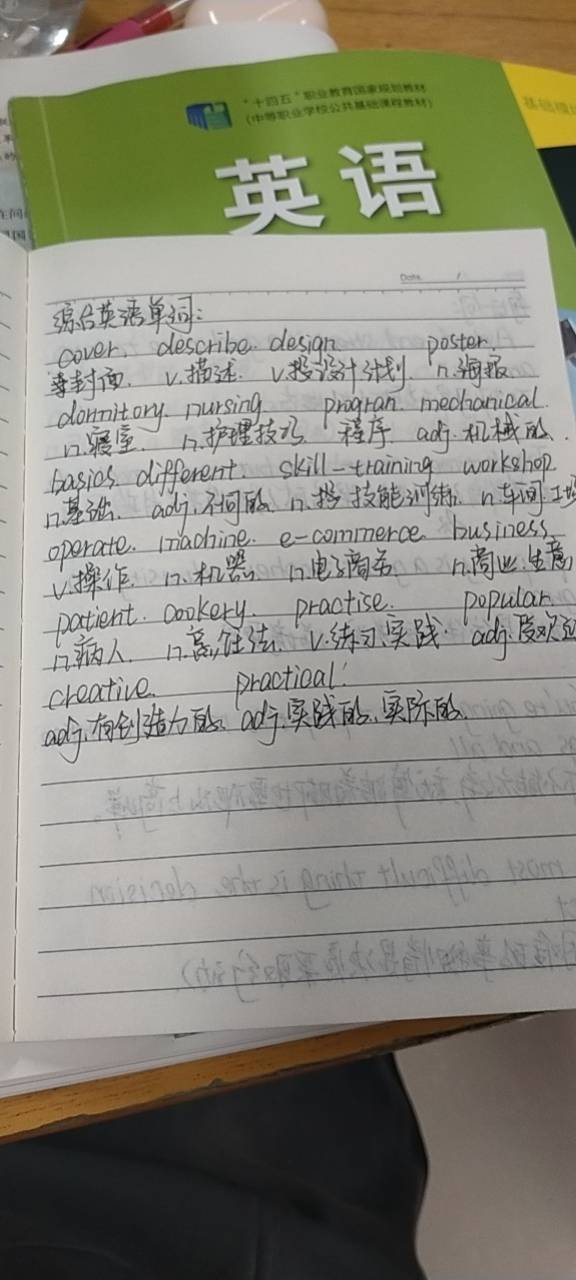 "十四五"职业教育国家规划教材
(中等职业学校公共基础课程教材)
基础模块
英语
Date /
综合英语单词:
cover. describe. design poster.
封面. v.描述. v.设计计划. n.海报
dormitory. nursing. progran. mechanical.
n.寝室. n.护理技巧. 程序. adj.机械的.
basics. different. skill-training workshop.
n.基础. adj.不同的. n.技能训练. n.车间.工场
operate. machine. e-commerce. business
v.操作. n.机器. n.电子商务. n.商业.生意
patient. cookery. practise. popular.
n.病人. n.烹饪法. v.练习.实践. adj.受欢迎
creative. practical.
adj.有创造力的. adj.实践的.实际的.